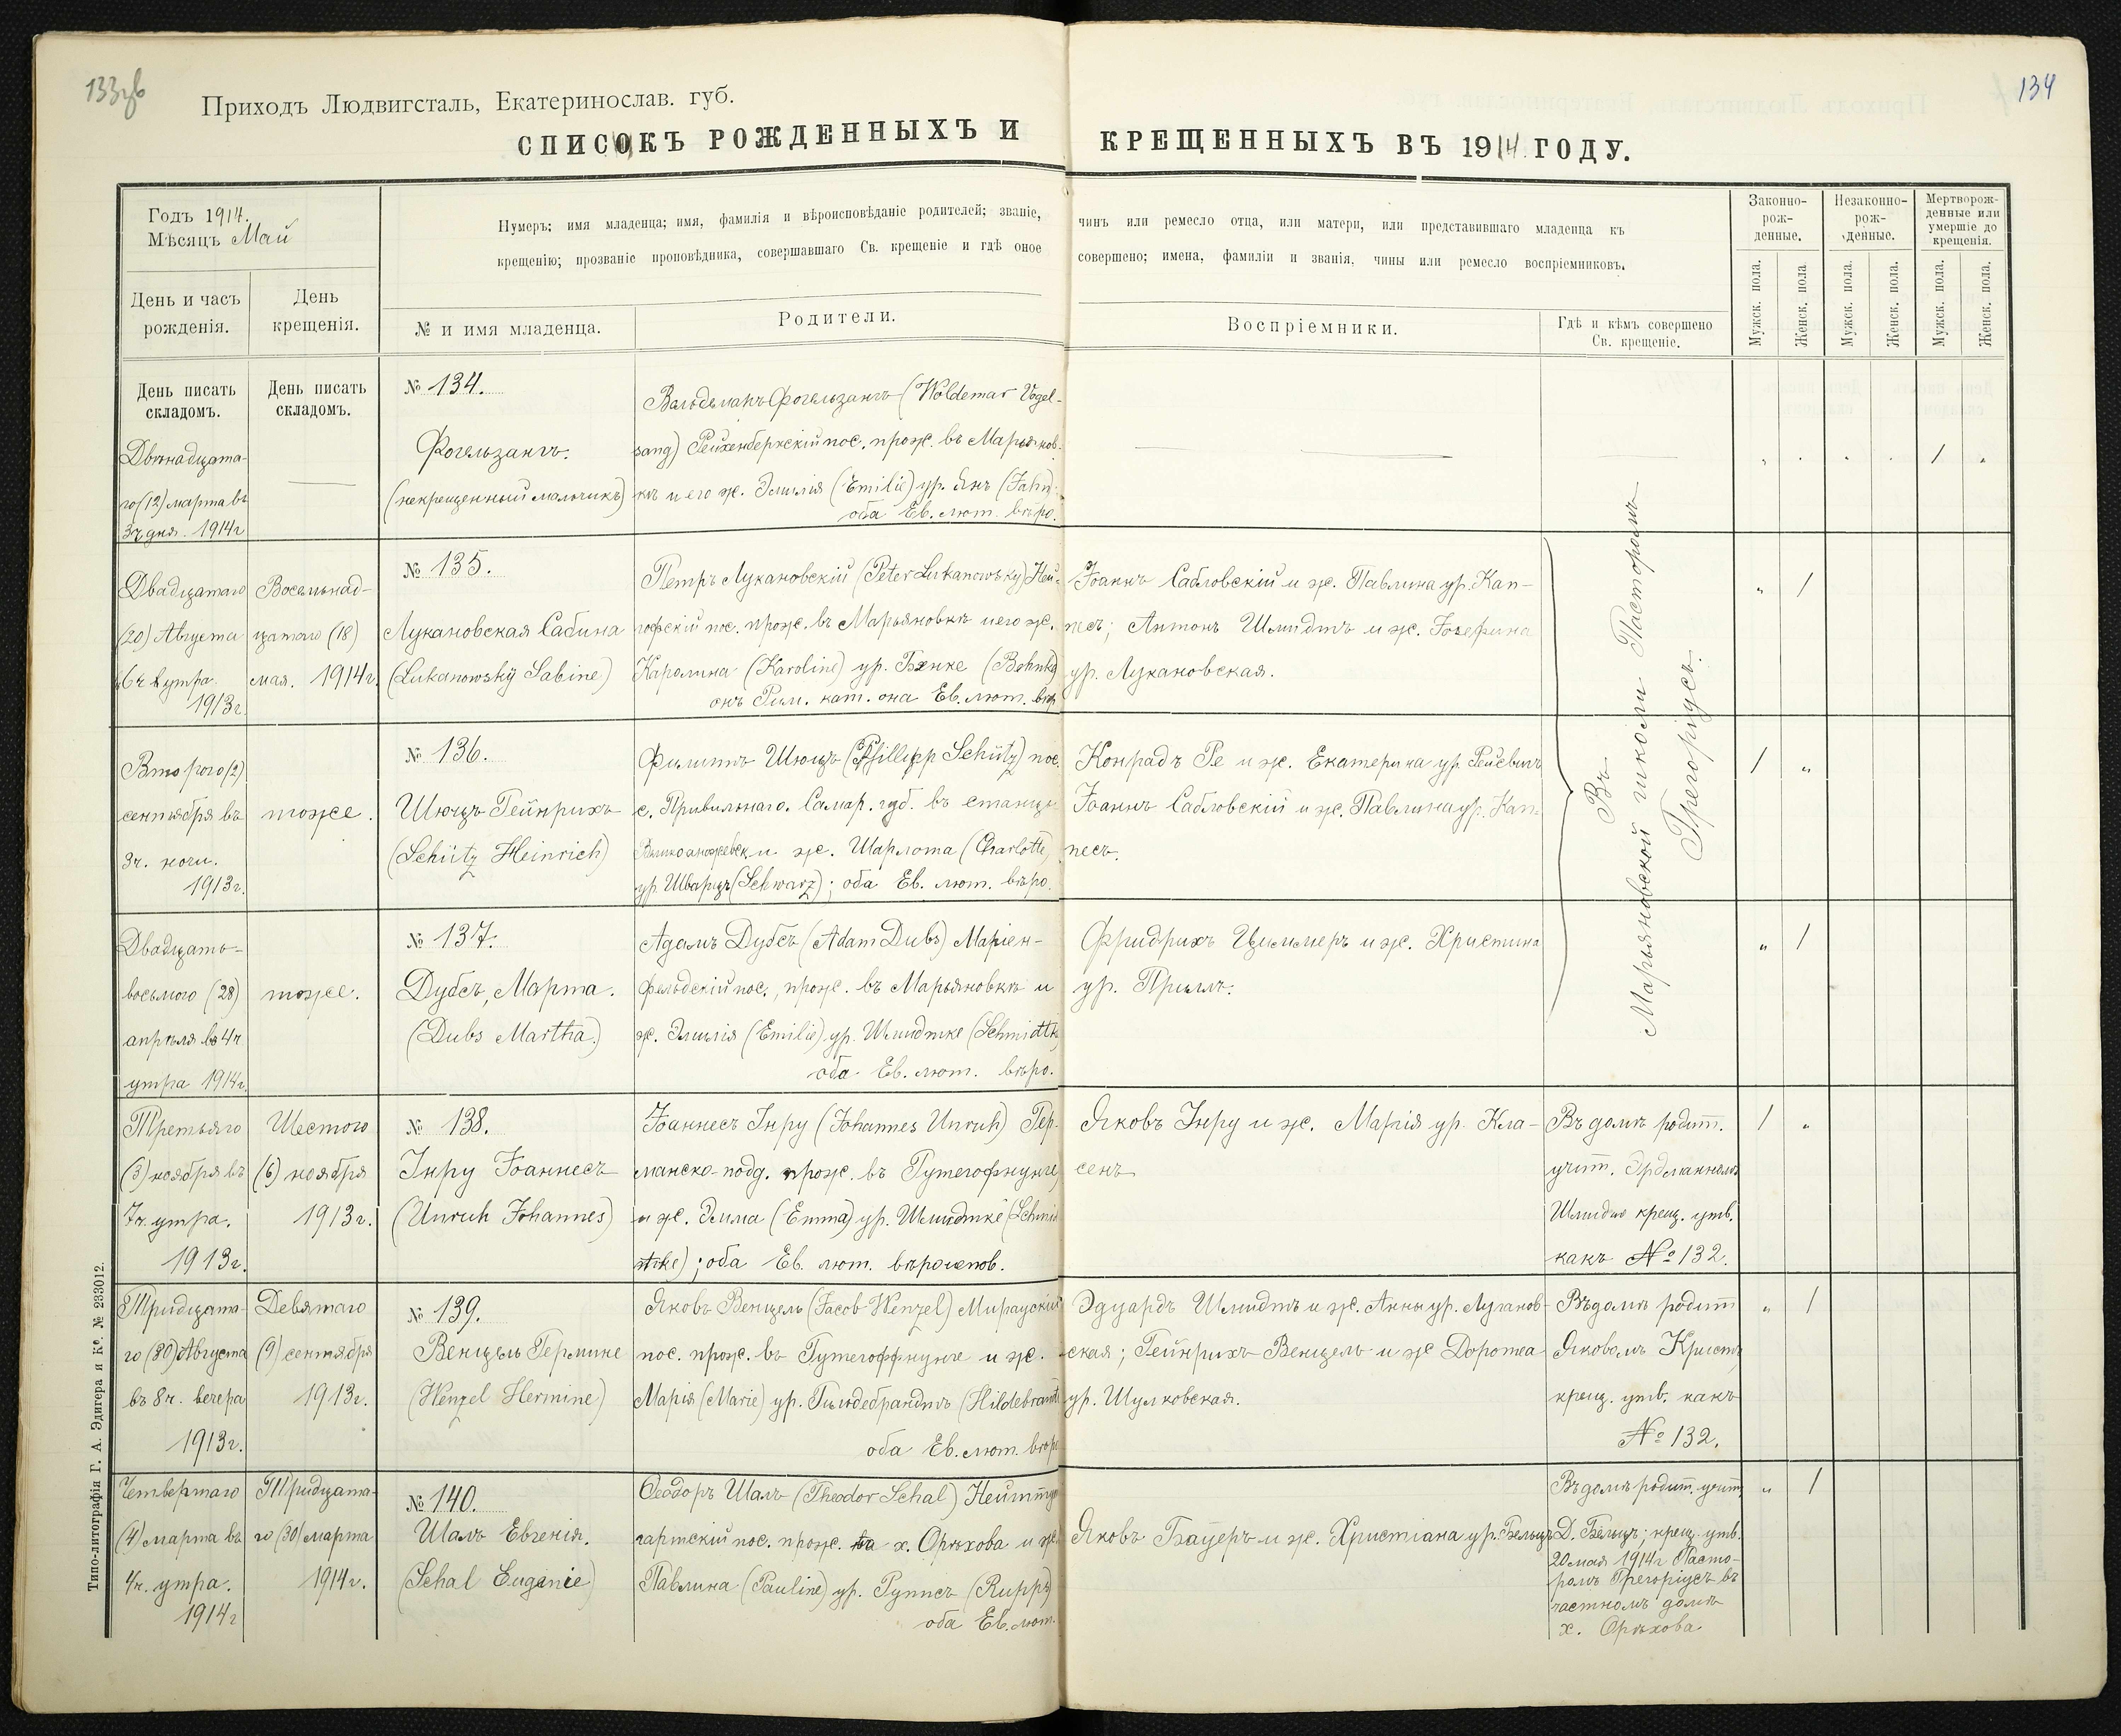 133об
134
Приходъ Людвигсталь, Екатеринослав. губ.
СПИСОКЪ РОЖДЕННЫХЪ И КРЕЩЕННЫХЪ ВЪ 1914 ГОДУ.
Годъ 1914.
Мѣсяцъ Май
День и часъ рожденія.
День крещенія.
Нумеръ; имя младенца; имя, фамилія и вѣроисповѣданіе родителей; званіе, чинъ или ремесло отца, или матери, или представившаго младенца къ
крещенію; прозваніе проповѣдника, совершавшаго Св. крещеніе и гдѣ оное совершено; имена, фамиліи и званія, чины или ремесло воспріемниковъ.
№ и имя младенца.
Родители.
Воспріемники.
Гдѣ и кѣмъ совершено
Св. крещеніе.
Законно-
рож-
денные.
Незаконно-
рож-
денные.
Мертворож-
денные или
умершіе до
крещенія.
Мужск. пола.
Женск. пола.
Мужск. пола.
Женск. пола.
Мужск. пола.
Женск. пола.
День писать
складомъ.
День писать
складомъ.
Двѣнадцата-
го (12) марта въ
3 ч дня. 1914г
№ 134.
Фогельзангъ.
(некрещенный мальчикъ)
Вольдемаръ Фогельзангъ (Woldemar Vogel-
sang) Рейхенбергскій пос. прож. въ Марьянов-
кѣ и его ж. Эмилія (Emilie) ур. Янъ (Jahn)
оба Ев. лют. вѣро.
Двадцатаго
(20) Августа
6 ч утра
1913г.
Восемнад-
цатаго (18)
мая. 1914г.
№ 135.
Лукановская Сабина
(Lukanowsky Sabine)
Петръ Лукановскій (Peter Lukanowsky) Ней-
гофскій пос. прож. въ Марьяновкѣ и его ж.
Каролина (Karoline) ур. Бэнке (Bohnke)
онъ Рим. кат. она Ев. лют. вѣр
Іоаннъ Сабловскій и ж. Павлина ур. Кап-
песъ; Антонъ Шмидтъ и ж. Іозефина
ур. Лукановская.
Въ
Марьяновской школѣ Пасторомъ
Грегоріусъ.
Второго (2)
сентября въ
3 ч. ночи.
1913г.
тоже.
№ 136.
Шюцъ Гейнрихъ
(Schütz Heinrich)
Филиппъ Шюцъ (Phillipp Schütz) пос.
с. Привильнаго. Самар. губ. въ станцы
и ж. Шарлота (Charlotte)
ур. Шварцъ (Schwarz); оба Ев. лют. вѣро.
Конрадъ Ре и ж. Екатерина ур.
Іоаннъ Сабловскій и ж. Павлина ур. Кап-
песъ.
Двадцать-
восьмого (28)
апрѣля въ 4ч
утра 1914г.
тоже.
№ 137.
Дубсъ, Марта.
(Dubs Martha.)
Адамъ Дубсъ (Adam Dubs) Маріен-
фельдскій пос., прож. въ Марьяновкѣ и
ж. Эмилія (Emilie) ур. Шмидтке (Schmidtke)
оба Ев. лют. вѣро.
Фридрихъ Циммеръ и ж. Христина
ур. Прилль.
Третьяго
(3) ноября въ
7 ч. утра.
1913г.
Шестого
(6) ноября
1913г.
№ 138.
Унру Іоаннесъ
(Unruh Johannes)
Іоаннесъ Унру (Johannes Unruh) Гер-
манско-подд. прож. въ Гутегофнунге,
и ж. Эмма (Emma) ур. Шмидтке (Schmi
dtke); оба Ев. лют. вѣроиспов.
Яковъ Унру и ж. Марія ур. Кла-
сенъ
Въ домѣ родит.
учит. Эрдманномъ
Шмидтъ крещ. утв.
какъ № 132.
Тридцата-
го (30) Августа
въ 8 ч. вечера
1913г.
Девятаго
(9) сентября
1913г.
№ 139.
Венцель Гермине
(Wenzel Hermine)
Яковъ Венцель (Jacob Wenzel) Мирауский
пос. прож. въ Гутегоффнунге и ж.
Марія (Marie) ур. Гильдебрандтъ (Hildebrandt
оба Ев. лют. вѣро
Эдуардъ Шмидтъ и ж. Анны ур. Луганов-
ская; Гейнрихъ Венцель и ж Доротеа
ур. Шулковская.
Въ домѣ родит
Яковомъ Кристъ
крещ. утв. какъ
№ 132.
Четвертаго
(4) марта въ
4 ч. утра.
1914г
Тридцата-
го (30) марта
1914г.
№ 140.
Шаль Евгенія.
(Schal Eugenie)
Ѳеодоръ Шаль (Theodor Schal) Нейштут
гартскій пос. прож. на х. Орѣхова и ж.
Павлина (Pauline) ур. Руппсъ (Rupps)
оба Ев. лют.
Яковъ Бауеръ и ж. Христіана ур. Бельцъ
Въ домѣ родит. учит.
Д. Бельцъ; крещ. утв.
20 мая 1914г Пасто-
ромъ Грегоріусъ въ
частномъ домѣ
х. Орѣхова
Типо-литографія Г. А. Эдигера и Ко. № 233012.